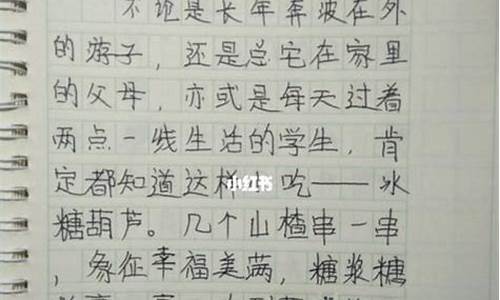 不论是长年奔波在外
的游子，还是总宅在家里
的父母，亦或是每天过着
两点一线生活的学生，肯
定都知道这样小吃——冰
糖葫芦。几个山楂串一串
，象征幸福美满，糖浆糖
小红书